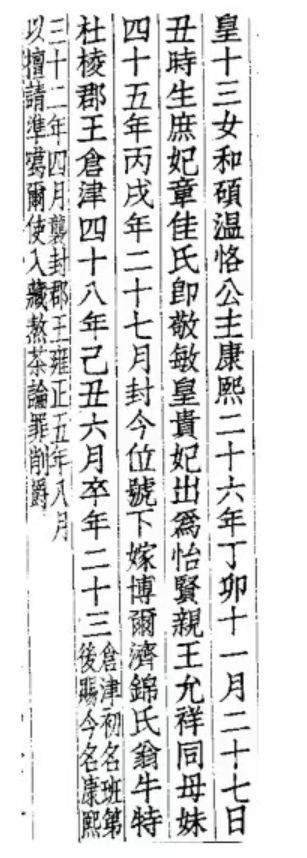 皇十三女和碩温恪公主康熙二十六年丁卯十一月二十七日
丑時生庶妃章佳氏卽敬敏皇貴妃出爲怡賢親王允祥同母妹
四十五年丙戌年二十七月封今位號下嫁博爾濟錦氏翁牛特
杜棱郡王倉津四十八年己丑六月卒年二十三倉津初名班第
後賜今名康熙
三十二年四月襲封郡王雍正五年八月
以擅請準噶爾使入藏熬茶論罪削爵